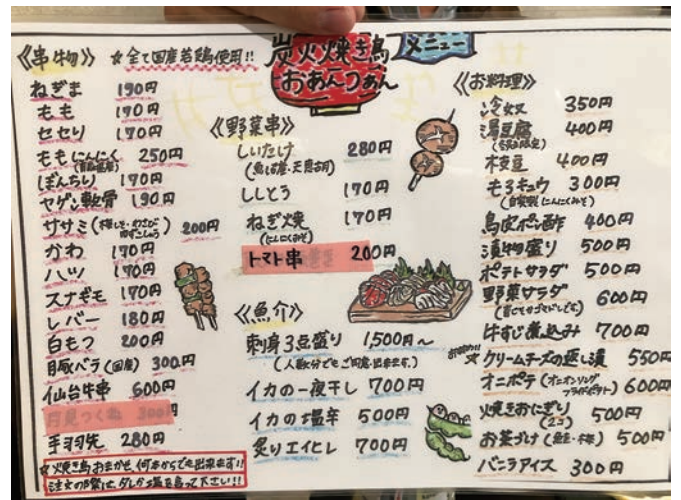 炭火焼き鳥
おあんつぁん
メニュー
《串物》 ☆全て国産若鶏使用!!
ねぎま 190円
もも 170円
セセリ 170円
ももにんにく 250円
ぼんちり 170円
ヤゲン軟骨 190円
ササミ(梅しそ・わさび 200円
ゆずこしょう)
かわ 170円
ハツ 170円
スナギモ 170円
レバー 180円
白もつ 200円
豚バラ(国産) 300円
仙台牛串 600円
月見つくね 300円
手羽先 280円
☆焼き鳥おまかせ、何本からでも出来ます!!
注文の際は、タレか塩を言って下さい!!
《野菜串》
しいたけ 280円
ししとう 170円
ねぎ焼 170円
(にんにくみそ)
トマト串 200円
《魚介》
刺身3点盛り 1,500円〜
(人数分でもご用意出来ます。)
イカの一夜干し 700円
イカの塩辛 500円
炙りエイヒレ 700円
《お料理》
冷奴 350円
湯豆腐 400円
(冬季限定)
枝豆 400円
モロキュウ 300円
(自家製にんにくみそ)
鳥皮ポン酢 400円
漬物盛り 500円
ポテトサラダ 500円
野菜サラダ 600円
牛すじ煮込み 700円
クリームチーズの蒸し漬 550円
オニポテ(オニオンリング 600円
フライドポテト)
焼きおにぎり 500円
(2コ)
お茶づけ(鮭・梅) 500円
バニラアイス 300円